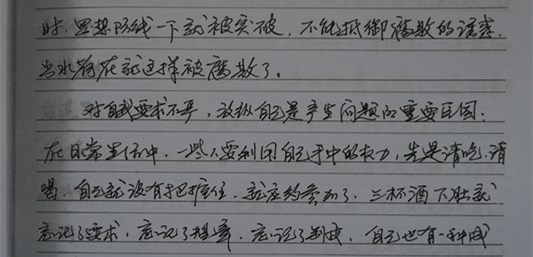 时，思想防线一下就被突破，不能抵御腐败的诱惑，
当水利局在就这样被腐败了。
对自我要求不严，放纵自己是产生问题的重要原因：
在日常生活中，一些人要利用自己手中的权力，先是请吃、请
喝，自己就没有把握住，就应约参加了，三杯酒下肚就
忘记了要求，忘记了规章，忘记了制度，自己也有一种成